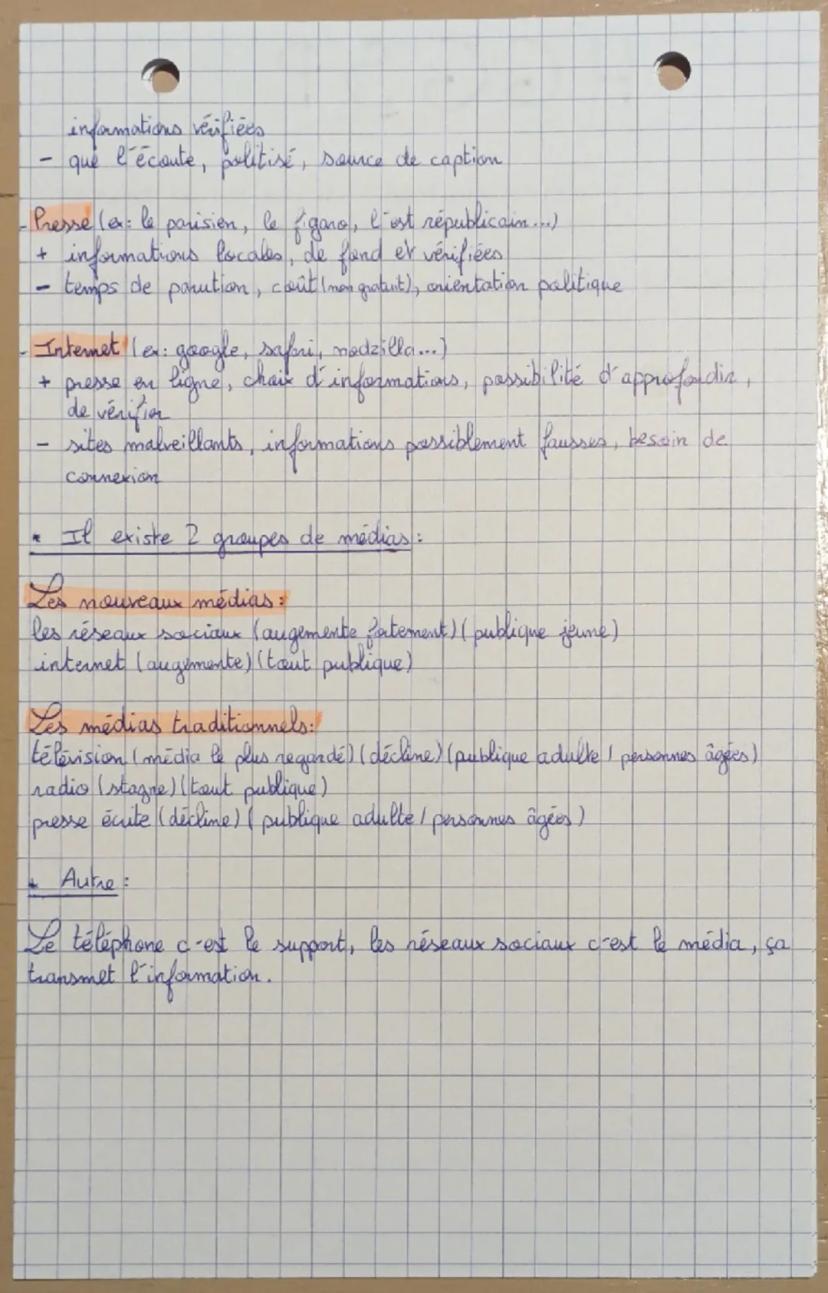 informations vérifiées
- que l'écoute, politisé, source de caption
- Presse (ex: le parisien, le figaro, l'est républicain...)
+ informations locales, de fond et vérifiées
- temps de parution, coût (non gratuit), orientation politique
- Internet (ex: google, safari, modzilla...)
+ presse en ligne, choix d'informations, possibilité d'approfondir,
de vérifier
- sites malveillants, informations possiblement fausses, besoin de
connexion
* Il existe 2 groupes de médias:
Les nouveaux médias:
les réseaux sociaux (augemente fortement) (publique jeune)
internet (augmente) (tout publique)
Les médias traditionnels:
télévision (média le plus regardé) (décline) (publique adulte / personnes âgées)
radio (stagne) (tout publique)
presse écrite (décline) (publique adulte / personnes âgées)
* Autre:
Le téléphone c'est le support, les réseaux sociaux c'est le média, ça
transmet l'information.